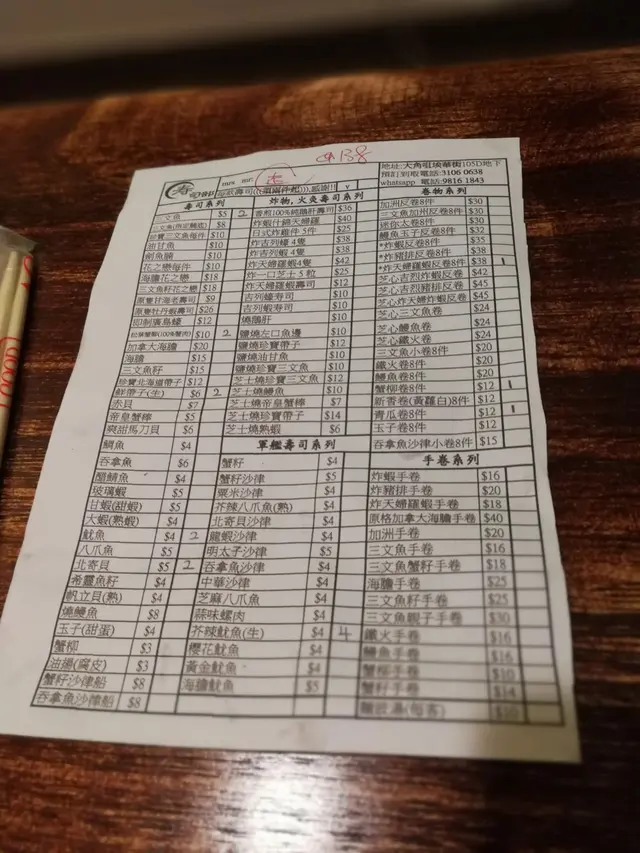 $138
寿司郎
mcs. mr:
走
地址:大角咀埃華街105D地下
預訂到取電話:3106 0638
whatsapp 電話:9816 1843
壽司系列
三文魚 $5 2
$8
$10
油甘魚 $10
劍魚腩 $10
花之戀每件 $10
海膽花之戀 $18
三文魚籽花之戀 $18
原隻甘海老壽司 $9
原隻牡丹蝦壽司 $26
即制廣島蠔 $12
松葉蟹柳(100%蟹肉) $10 2
加拿大海膽 $20
海膽 $15
三文魚籽 $15
珍寶北海道帶子 $12
鮮帶子(生) $6 2
赤貝 $7
帝皇蟹棒 $5
爽甜馬刀貝 $6
鯛魚 $4
吞拿魚 $6
醋鯖魚 $4
玻璃蝦 $5
甘蝦(甜蝦) $5
大蝦(熟蝦) $4
魷魚 $4 2
八爪魚 $5
北寄貝 $5 2
希靈魚籽 $4
帆立貝(熟) $4
燒鰻魚 $8
玉子(甜蛋) $4
蟹柳 $3
油揚(腐皮) $3
蟹籽沙律船 $8
吞拿魚沙律船 $8
炸物,火炙壽司系列
香煎100%純鵝肝壽司 $36
炸蝦什錦天婦羅 $40
日式炸雞件 5件 $25
炸吉列蠔 4隻 $38
炸吉列蝦 4隻 $38
炸天婦羅蝦 4隻 $42
炸一口芝士 5 粒 $25
炸天婦羅蝦壽司 $12
吉列蠔壽司 $10
吉列蝦壽司 $10
燒鵝肝 $10
鹽燒左口魚邊 $10
鹽燒珍寶帶子 $12
鹽燒油甘魚 $10
鹽燒珍寶三文魚 $10
芝士燒珍寶三文魚 $12
芝士燒鰻魚 $10
芝士燒帝皇蟹棒 $7
芝士燒珍寶帶子 $14
芝士燒熟蝦 $6
軍艦壽司系列
蟹籽 $4
蟹籽沙律 $5
粟米沙律 $4
芥辣八爪魚(熟) $4
北寄貝沙律 $4
龍蝦沙律 $4
明太子沙律 $5
吞拿魚沙律 $4
中華沙律 $4
芝麻八爪魚 $4
蒜味螺肉 $4
芥辣魷魚(生) $4 4
櫻花魷魚 $4
黃金魷魚 $4
海膽魷魚 $5
卷物系列
加洲反卷8件 $30
三文魚加洲反卷8件 $30
迷你太卷8件 $30
鰻魚玉子反卷8件 $32
*炸蝦反卷8件 $35
*炸豬排反卷8件 $38
*炸天婦羅蝦反卷8件 $38 1
芝心吉列炸蝦反卷 $42
芝心吉列豬排反卷 $45
芝心炸天婦炸蝦反卷 $45
芝心三文魚卷 $24
芝心鰻魚卷 $24
芝心鐵火卷 $24
三文魚小卷8件 $20
鐵火卷8件 $20
鰻魚卷8件 $20
蟹柳卷8件 $12 1
新香卷(黃蘿白)8件 $12
青瓜卷8件 $12 1
玉子卷8件 $12
吞拿魚沙律小卷8件 $15
手卷系列
炸蝦手卷 $16
炸豬排手卷 $20
炸天婦羅蝦手卷 $18
原格加拿大海膽手卷 $40
加洲手卷 $20
三文魚手卷 $16
三文魚蟹籽手卷 $18
海膽手卷 $25
三文魚籽手卷 $25
三文魚親子手卷 $30
鐵火手卷 $16
鰻魚手卷 $16
蟹柳手卷 $10
蟹籽手卷 $14
$10